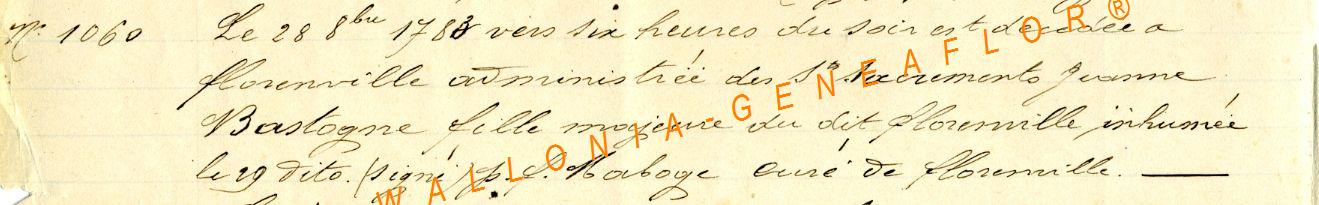 N° 1060 Le 28 8bre 1783 vers six heures du soir est décédée a
florenville administrée des Sts Sacrements Jeanne
Bastogne fille majeure du dit florenville, inhumée
le 29 dito. (signé) p. f. Maboge curé de florenville. —
WALLONIA-GENEAFLOR®